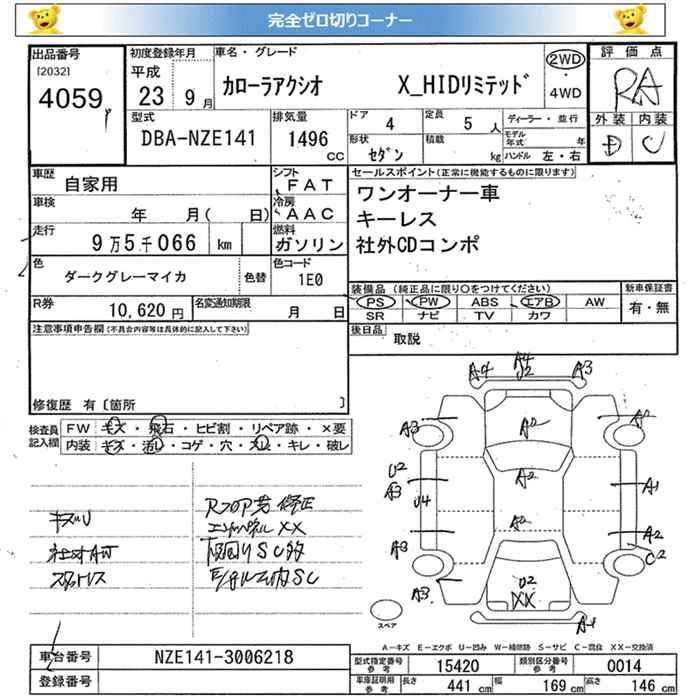 完全ゼロ切りコーナー
出品番号
[2032]
4059
初度登録年月
平成
23 9月
車名・グレード
カローラアクシオ X_HIDリミテッド
2WD
・
4WD
評価点
RA
外装 内装
D C
型式
DBA-NZE141
排気量
1496
CC
ドア 4
定員 5 人
ディーラー・並行
形状 セダン
積載 kg
モデル年式 年
ハンドル 左・右
車歴
自家用
シフト
FAT
車検
年 月( 日)
冷房
AAC
走行
9万5千066 km
燃料
ガソリン
色
ダークグレーマイカ
色替
色コード
1E0
R券
10,620円
名変通知期限
月 日
セールスポイント(正常に機能するものに限ります)
ワンオーナー車
キーレス
社外CDコンポ
装備品(純正品に限り〇をつけてください)
新車保証書
PS PW ABS エアB AW
有・無
SR ナビ TV カワ
後日品
取説
注意事項申告欄(不具合内容等は具体的に記入して下さい)
修復歴 有〔箇所 〕
検査員
記入欄
FW キズ・飛石・ヒビ割・リペア跡・×要
内装 キズ・汚れ・コゲ・穴・スレ・キレ・破レ
キズU
社オAW
RフロアXX
A4 A4 U2 A3
A3 A2 A2
U2 A3 U4 A2 A1
A2 A2
A3 C2
A3 U2 XX
A4
スペア
A-キズ E-エクボ U-凹み W-補修跡 S-サビ C-腐食 XX-交換済
車台番号
NZE141-3006218
登録番号
型式指定番号
参考
15420
類別区分番号
参考
0014
車庫証明用
参考
長さ 441 cm
幅 169 cm
高さ 146 cm